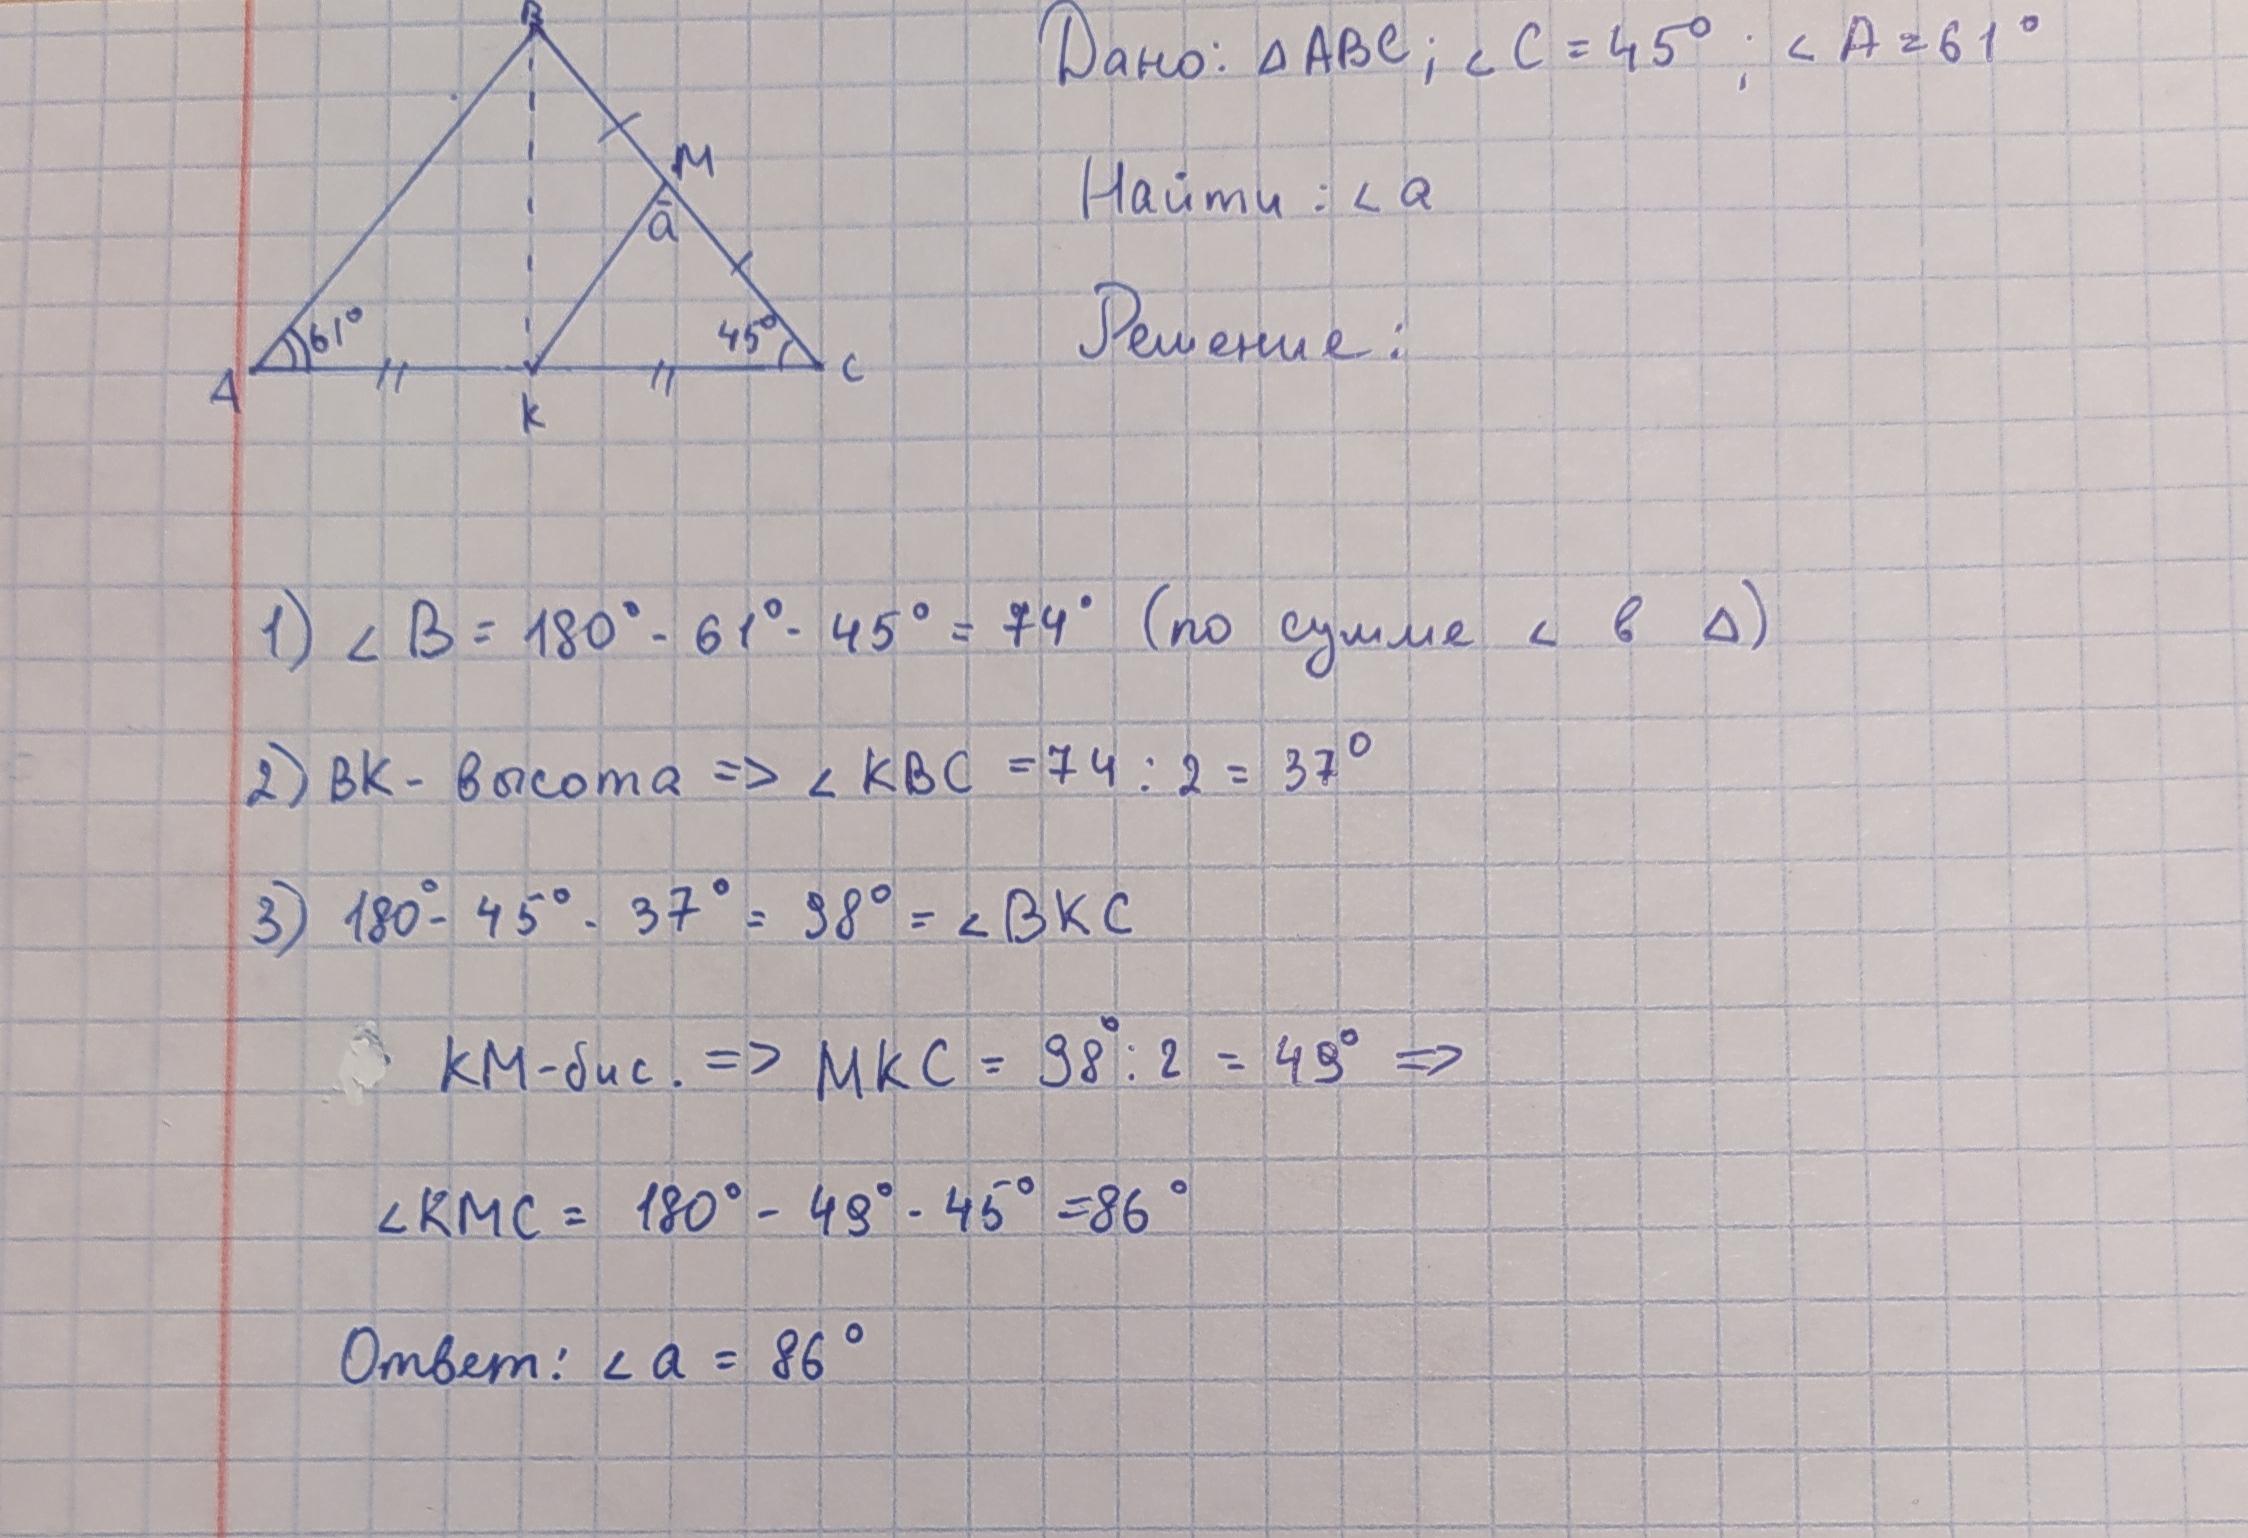 B
M
a
61°
45°
A
K
C
Дано: △ABC; ∠C = 45°; ∠A = 61°
Найти: ∠a
Решение:
1) ∠B = 180° - 61° - 45° = 74° (по сумме ∠ в △)
2) BK - высота => ∠KBC = 74 : 2 = 37°
3) 180° - 45° - 37° = 98° = ∠BKC
KM - бис. => MKC = 98° : 2 = 49° =>
∠KMC = 180° - 49° - 45° = 86°
Ответ: ∠a = 86°